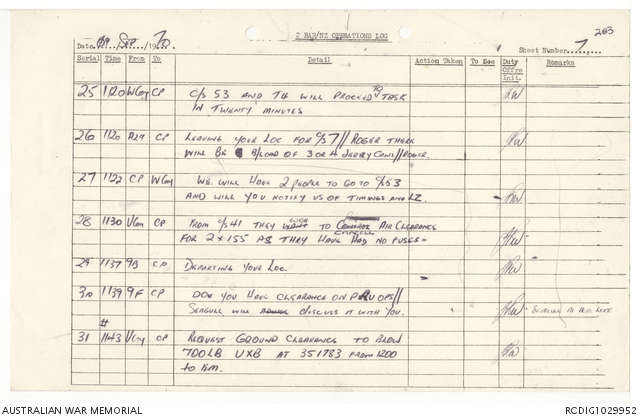 2 RAR/NZ OPERATIONS LOG
203
Date. 09/SEP/1970
Sheet Number 7
Serial Time From To Detail Action Taken To See Duty Offrs Init. Remarks
25 1120 WCoy CP C/S 53 AND TH WILL PROCEED TO TASK
IN TWENTY MINUTES
26 1120 A29 CP LEAVING YOUR LOC FOR C/S 7// ROGER THERE
WILL BE B/LOAD OF 3 OR 4 JERRY CANS// ROGER.
27 1122 CP WCoy WE WILL HAVE 2 PEOPLE TO GO TO C/S 53
AND WILL YOU NOTIFY US OF TIMINGS AND LZ.
28 1130 VCoy CP FROM C/S 41 THEY WISH TO CANCELL AIR CLEARANCE
FOR 2 x 155 AS THEY HAVE NO FUSES -
29 1137 9B CP DEPARTING YOUR LOC.
30 1139 9F CP DO YOU HAVE CLEARANCE ON P OPS//
SEAGULL WILL DISCUSS IT WITH YOU.
#
31 1143 VCoy CP REQUEST GROUND CLEARANCE TO BLOW
700LB UXB AT 351783 FROM 1200
TO
AUSTRALIAN WAR MEMORIAL
RCDIG1029952